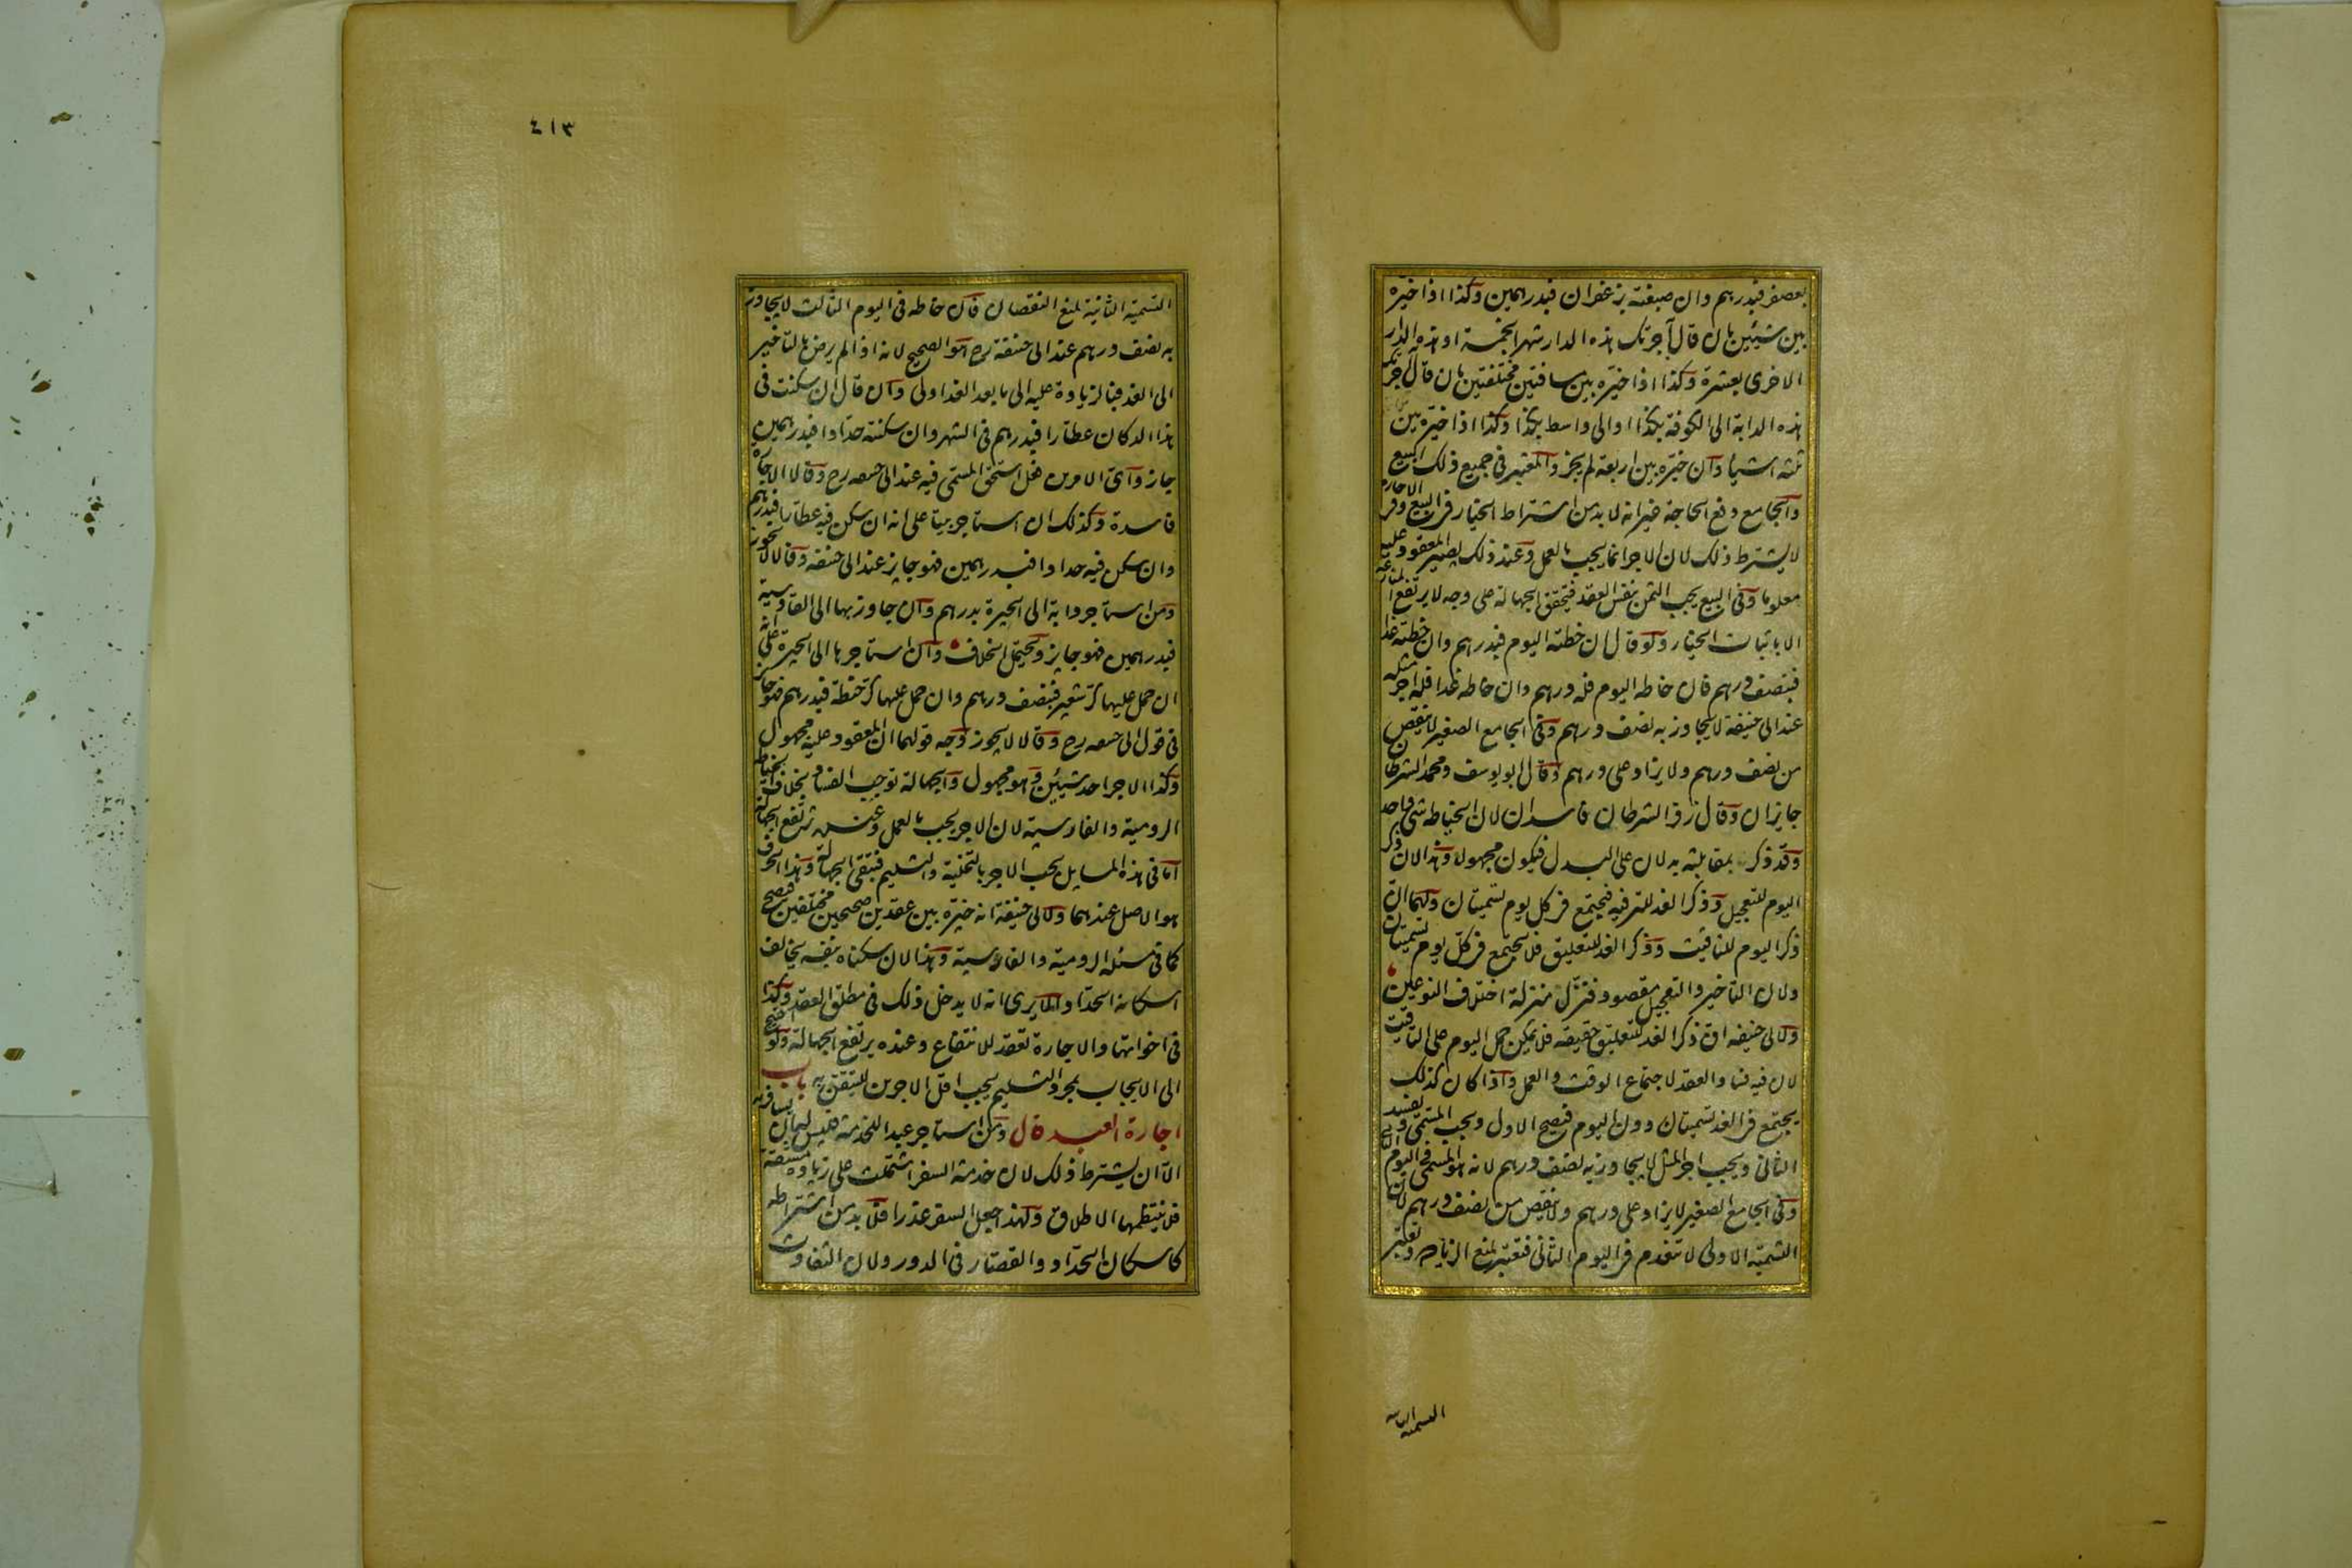 بعصفر فبدرهم وان صبغته بزعفران فبدرهمين وكذا اذا خيره
بين شيئين بان قال آجرتك هذه الدار شهرا بخمسة او هذه الدار
الاخرى بعشرة وكذا اذا خيره بين مسافتين مختلفتين بان قال آجرتك
هذه الدابة الى الكوفة بكذا او الى واسط بكذا وكذا اذا خيره بين
ثلثه اشياء وان خيره بين اربعة لم يجز والمعتبر فى جميع ذلك البيع
والجامع دفع الحاجة غير انه لا بد من اشتراط الخيار فى البيع وفى الاجارة
لا يشترط ذلك لان الاجر انما يجب بالعمل وعند ذلك يصير المعقود عليه
معلوما وفى البيع يجب الثمن بنفس العقد فيتحقق الجهالة على وجه لا يرتفع المنازعة
الا باثبات الخيار ولو قال ان خطته اليوم فبدرهم وان خطته غدا
فبنصف درهم فان خاطه اليوم فله درهم وان خاطه غدا فله اجر مثله
عند ابى حنيفة لا يجاوز به نصف درهم وفى الجامع الصغير لا ينقص
من نصف درهم ولا يزاد على درهم وقال ابو يوسف ومحمد الشرطان
جايزان وقال زفر الشرطان فاسدان لان الخياطه شئ واحد
وقد ذكر بمقابلته بدلان على البدل فيكون مجهولا وهذا لان ذكر
اليوم للتعجيل وذكر الغد للترفيه فيجتمع فى كل يوم تسميتان ولهما ان
ذكر اليوم للتاقيت وذكر الغد للتعليق فلا يجتمع فى كل يوم تسميتان
ولان التاخير والتعجيل مقصود فنزل منزلة اختلاف النوعين
ولابى حنيفه ان ذكر الغد للتعليق حقيقه فلا يمكن حمل اليوم على التاقيت
لان فيه فساد العقد لاجتماع الوقت والعمل واذا كان كذلك
يجتمع فى الغد تسميتان دون اليوم فيصح الاول ويجب المسمى ويفسد
الثانى ويجب اجر المثل لا يجاوز به نصف درهم لانه هو المسمى فى اليوم الثانى
وفى الجامع الصغير لا يزاد على درهم ولا ينقص من نصف درهم لان
التسمية الاولى لا تنعدم فى اليوم الثانى فتعتبر لمنع الزيادة وتعتبر
التسمية الثانية
٤١٣
التسمية الثانية لمنع النقصان فان خاطه فى اليوم الثالث لا يجاوز
به نصف درهم عند ابى حنيفة رح هو الصحيح لانه اذا لم يرض بالتاخير
الى الغد فبالزيادة عليه الى ما بعد الغد اولى وان قال ان سكنت فى
هذا الدكان عطارا فبدرهم فى الشهر وان سكنته حدادا فبدرهمين
جاز وآى الامرين فعل استحق المسمى فيه عند ابى حنيفه رح وقالا الاجارة
فاسدة وكذلك ان استاجر بيتا على انه ان سكن فيه عطارا فبدرهم
وان سكن فيه حدادا فبدرهمين فهو جايز عند ابى حنيفه وقالا لا يجوز
ومن استاجر دابة الى الحيرة بدرهم وان جاوز بها الى القادسية
فبدرهمين فهو جايز ويحتمل الخلاف وان استاجرها الى الحيرة على انه
ان حمل عليها كر شعير فبنصف درهم وان حمل عليها كر حنطة فبدرهم فهو جائز
فى قول ابى حنيفه رح وقالا لا يجوز وجه قولهما ان المعقود عليه مجهول
وكذا الاجر احد شيئين وهو مجهول والجهالة توجب الفساد بخلاف الخياطة
الرومية والفارسية لان الاجر يجب بالعمل وعنده يرتفع الجهالة
اما فى هذه المسايل يجب الاجر بالتخلية والتسليم فتبقى الجهالة وهذا الحرف
هو الاصل عندهما ولابى حنيفة انه خيره بين عقدين صحيحين مختلفين فيصح
كما فى مسئلة الرومية والفارسية وهذا لان سكناه بنفسه يخالف
اسكانه الحداد الا يرى انه لا يدخل ذلك فى مطلق العقد وكذا
فى اخواتها والاجارة تعقد للانتفاع وعنده يرتفع الجهالة ولو احتيج
الى الايجاب بمجرد التسليم يجب اقل الاجرين للتيقن به باب
اجارة العبد قال ومن استاجر عبدا للخدمة فليس له ان يسافر به
الا ان يشترط ذلك لان خدمة السفر اشتملت على زيادة مشقة
فلا ينتظمها الاطلاق ولهذا جعل السفر عذرا فلا بد من اشتراطه
كاسكان الحداد والقصار فى الدور ولان التفاوت